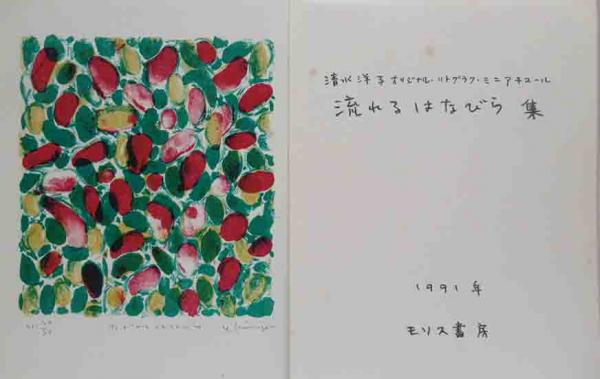 清水洋子 オリジナル・リトグラフ・ミニアチュール
流れるはなびら 集
1991年
モリス書房